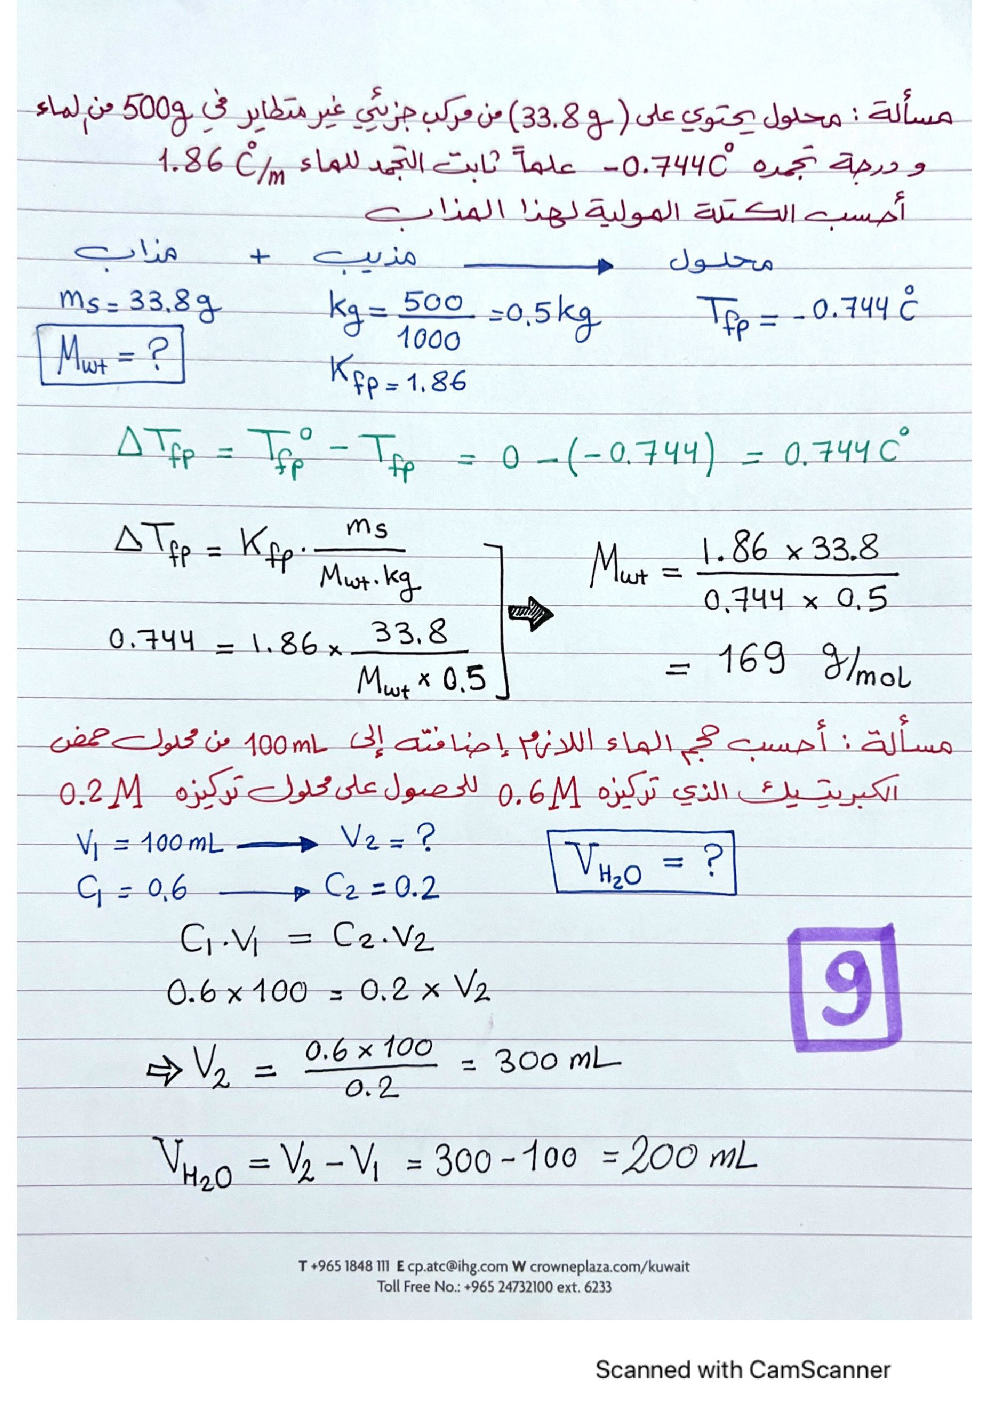 مسألة : محلول يحتوي على (33.8 g) من مركب جزيئي غير متطاير في 500g من لماء
و درجة تجمده -0.744C° علماً ثابت التجمد للماء 1.86 C°/m
أحسب الكتلة المولية لهذا المذاب
مذاب + مذيب ⟶ محلول
ms = 33.8g kg = 500/1000 = 0.5 kg Tfp = -0.744 C°
Mwt = ? Kfp = 1.86
ΔTfp = T°fp - Tfp = 0 - (-0.744) = 0.744 C°
ΔTfp = Kfp . ms/(Mwt . kg) ⇒ Mwt = (1.86 x 33.8)/(0.744 x 0.5)
0.744 = 1.86 x 33.8/(Mwt x 0.5) = 169 g/mol
مسألة : أحسب حجم الماء اللازم إضافته إلى 100 mL من محلول حمض
الكبريتيك الذي تركيزه 0.6M للحصول على محلول تركيزه 0.2M
V1 = 100 mL ⟶ V2 = ? VH2O = ?
C1 = 0.6 ⟶ C2 = 0.2
C1 . V1 = C2 . V2
0.6 x 100 = 0.2 x V2
9
⇒ V2 = (0.6 x 100)/0.2 = 300 mL
VH2O = V2 - V1 = 300 - 100 = 200 mL
T +965 1848 111 E cp.atc@ihg.com W crowneplaza.com/kuwait
Toll Free No.: +965 24732100 ext. 6233
Scanned with CamScanner